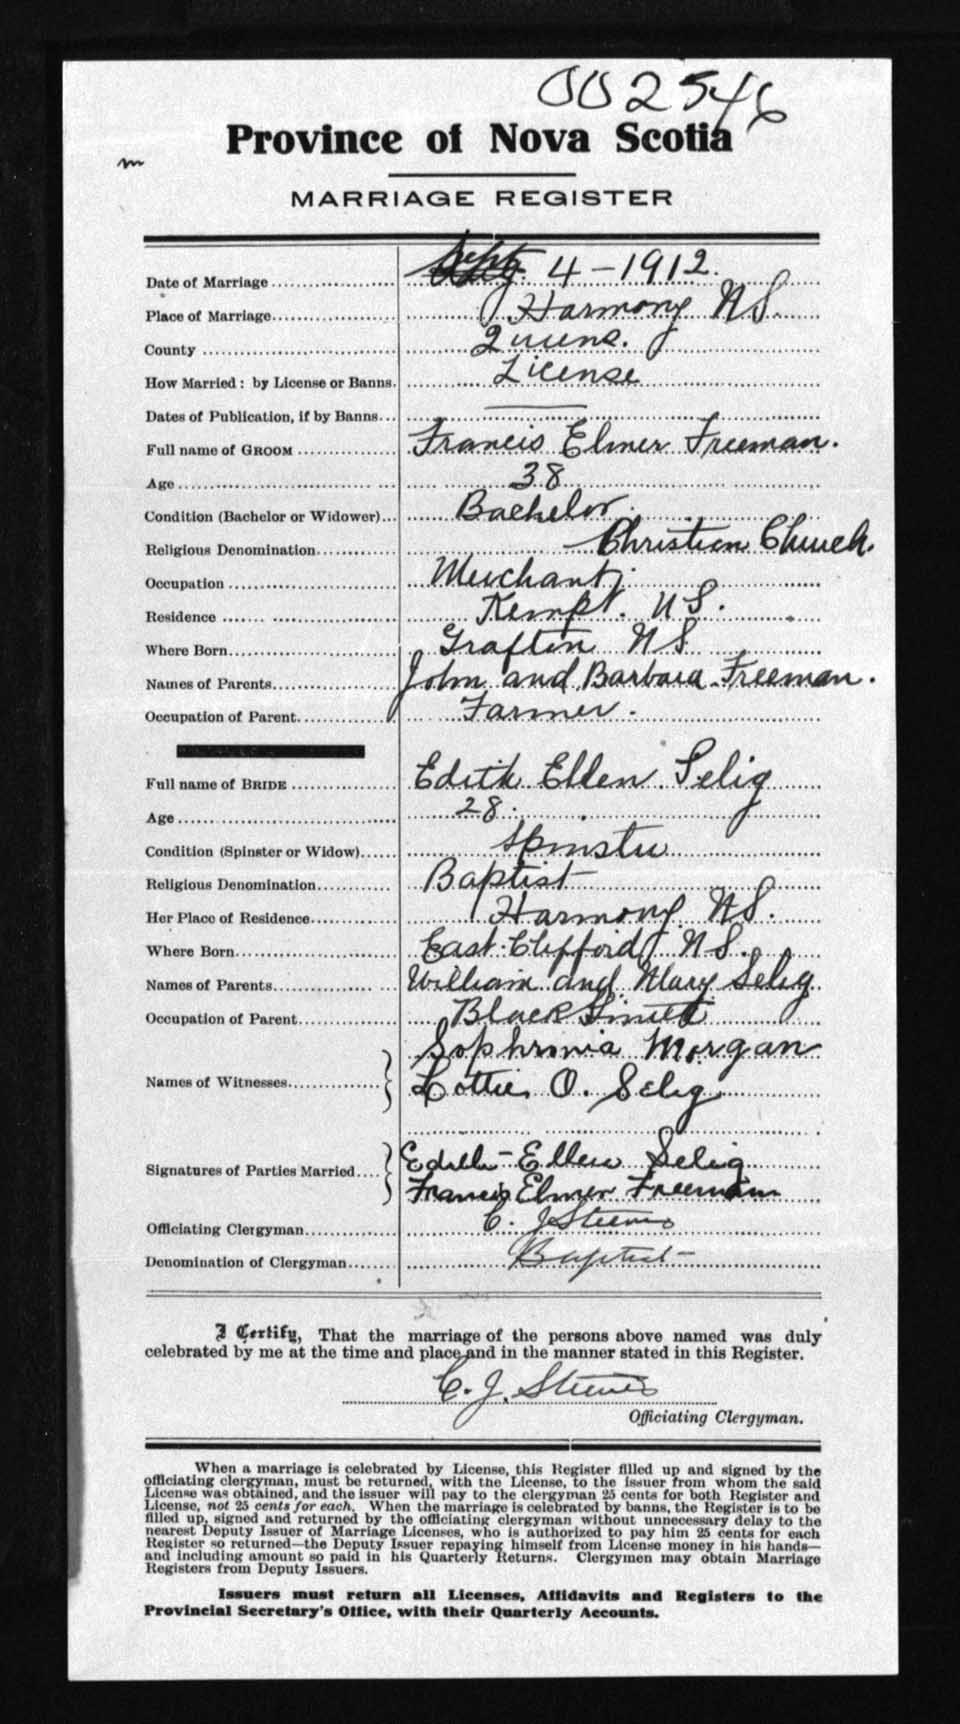 002546
Province of Nova Scotia
m
MARRIAGE REGISTER
Date of Marriage Sept. 4 - 1912.
Place of Marriage Harmony N S.
County Queens.
How Married: by License or Banns. License
Dates of Publication, if by Banns
Full name of GROOM Francis Elmer Freeman.
Age 38
Condition (Bachelor or Widower) Bachelor.
Religious Denomination Christian Church.
Occupation Merchant.
Residence Kempt. N S.
Where Born Grafton N S
Names of Parents John and Barbara Freeman.
Occupation of Parent Farmer.
Full name of BRIDE Edith Ellen Selig
Age 28.
Condition (Spinster or Widow) Spinster
Religious Denomination Baptist
Her Place of Residence Harmony N S.
Where Born East Clifford N S.
Names of Parents William and Mary Selig
Occupation of Parent Black Smith
Sophronia Morgan
Names of Witnesses Lottie O. Selig
Edith Ellen Selig
Signatures of Parties Married Francis Elmer Freeman
Officiating Clergyman C. J Steeves
Denomination of Clergyman Baptist
I Certify, That the marriage of the persons above named was duly
celebrated by me at the time and place and in the manner stated in this Register.
C. J. Steeves
Officiating Clergyman.
When a marriage is celebrated by License, this Register filled up and signed by the
officiating clergyman, must be returned, with the License, to the issuer from whom the said
License was obtained, and the issuer will pay to the clergyman 25 cents for both Register and
License, not 25 cents for each. When the marriage is celebrated by banns, the Register is to be
filled up, signed and returned by the officiating clergyman without unnecessary delay to the
nearest Deputy Issuer of Marriage Licenses, who is authorized to pay him 25 cents for each
Register so returned—the Deputy Issuer repaying himself from License money in his hands—
and including amount so paid in his Quarterly Returns. Clergymen may obtain Marriage
Registers from Deputy Issuers.
Issuers must return all Licenses, Affidavits and Registers to the
Provincial Secretary's Office, with their Quarterly Accounts.